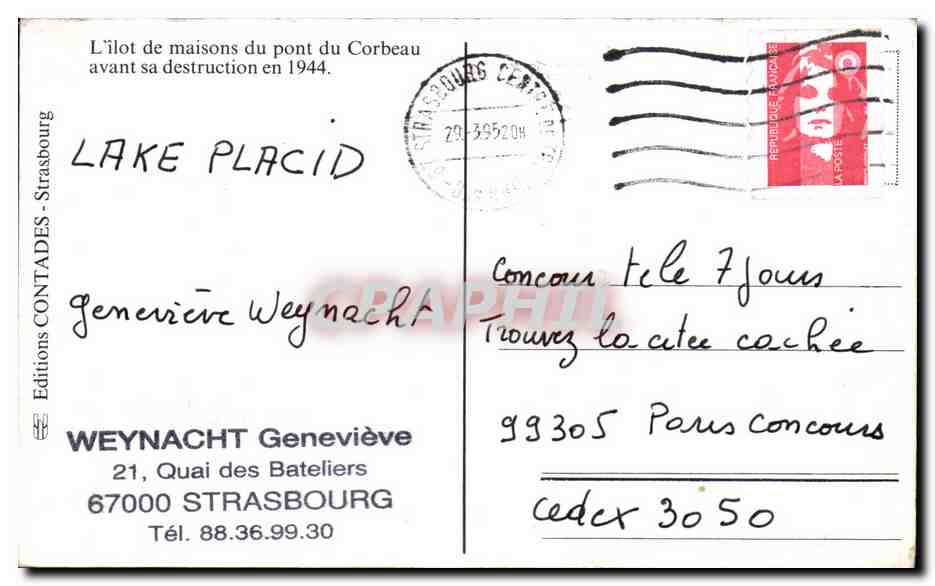 L'îlot de maisons du pont du Corbeau
avant sa destruction en 1944.
Editions CONTADES - Strasbourg
LAKE PLACID
Geneviève Weynacht
WEYNACHT Geneviève
21, Quai des Bateliers
67000 STRASBOURG
Tél. 88.36.99.30
STRASBOURG
29.-3.95 20H
REPUBLIQUE FRANÇAISE
LA POSTE
Concour tele 7 Jours
Trouvez la citee cachée
99305 Paris Concours
Cedex 3050
CPAPHIL